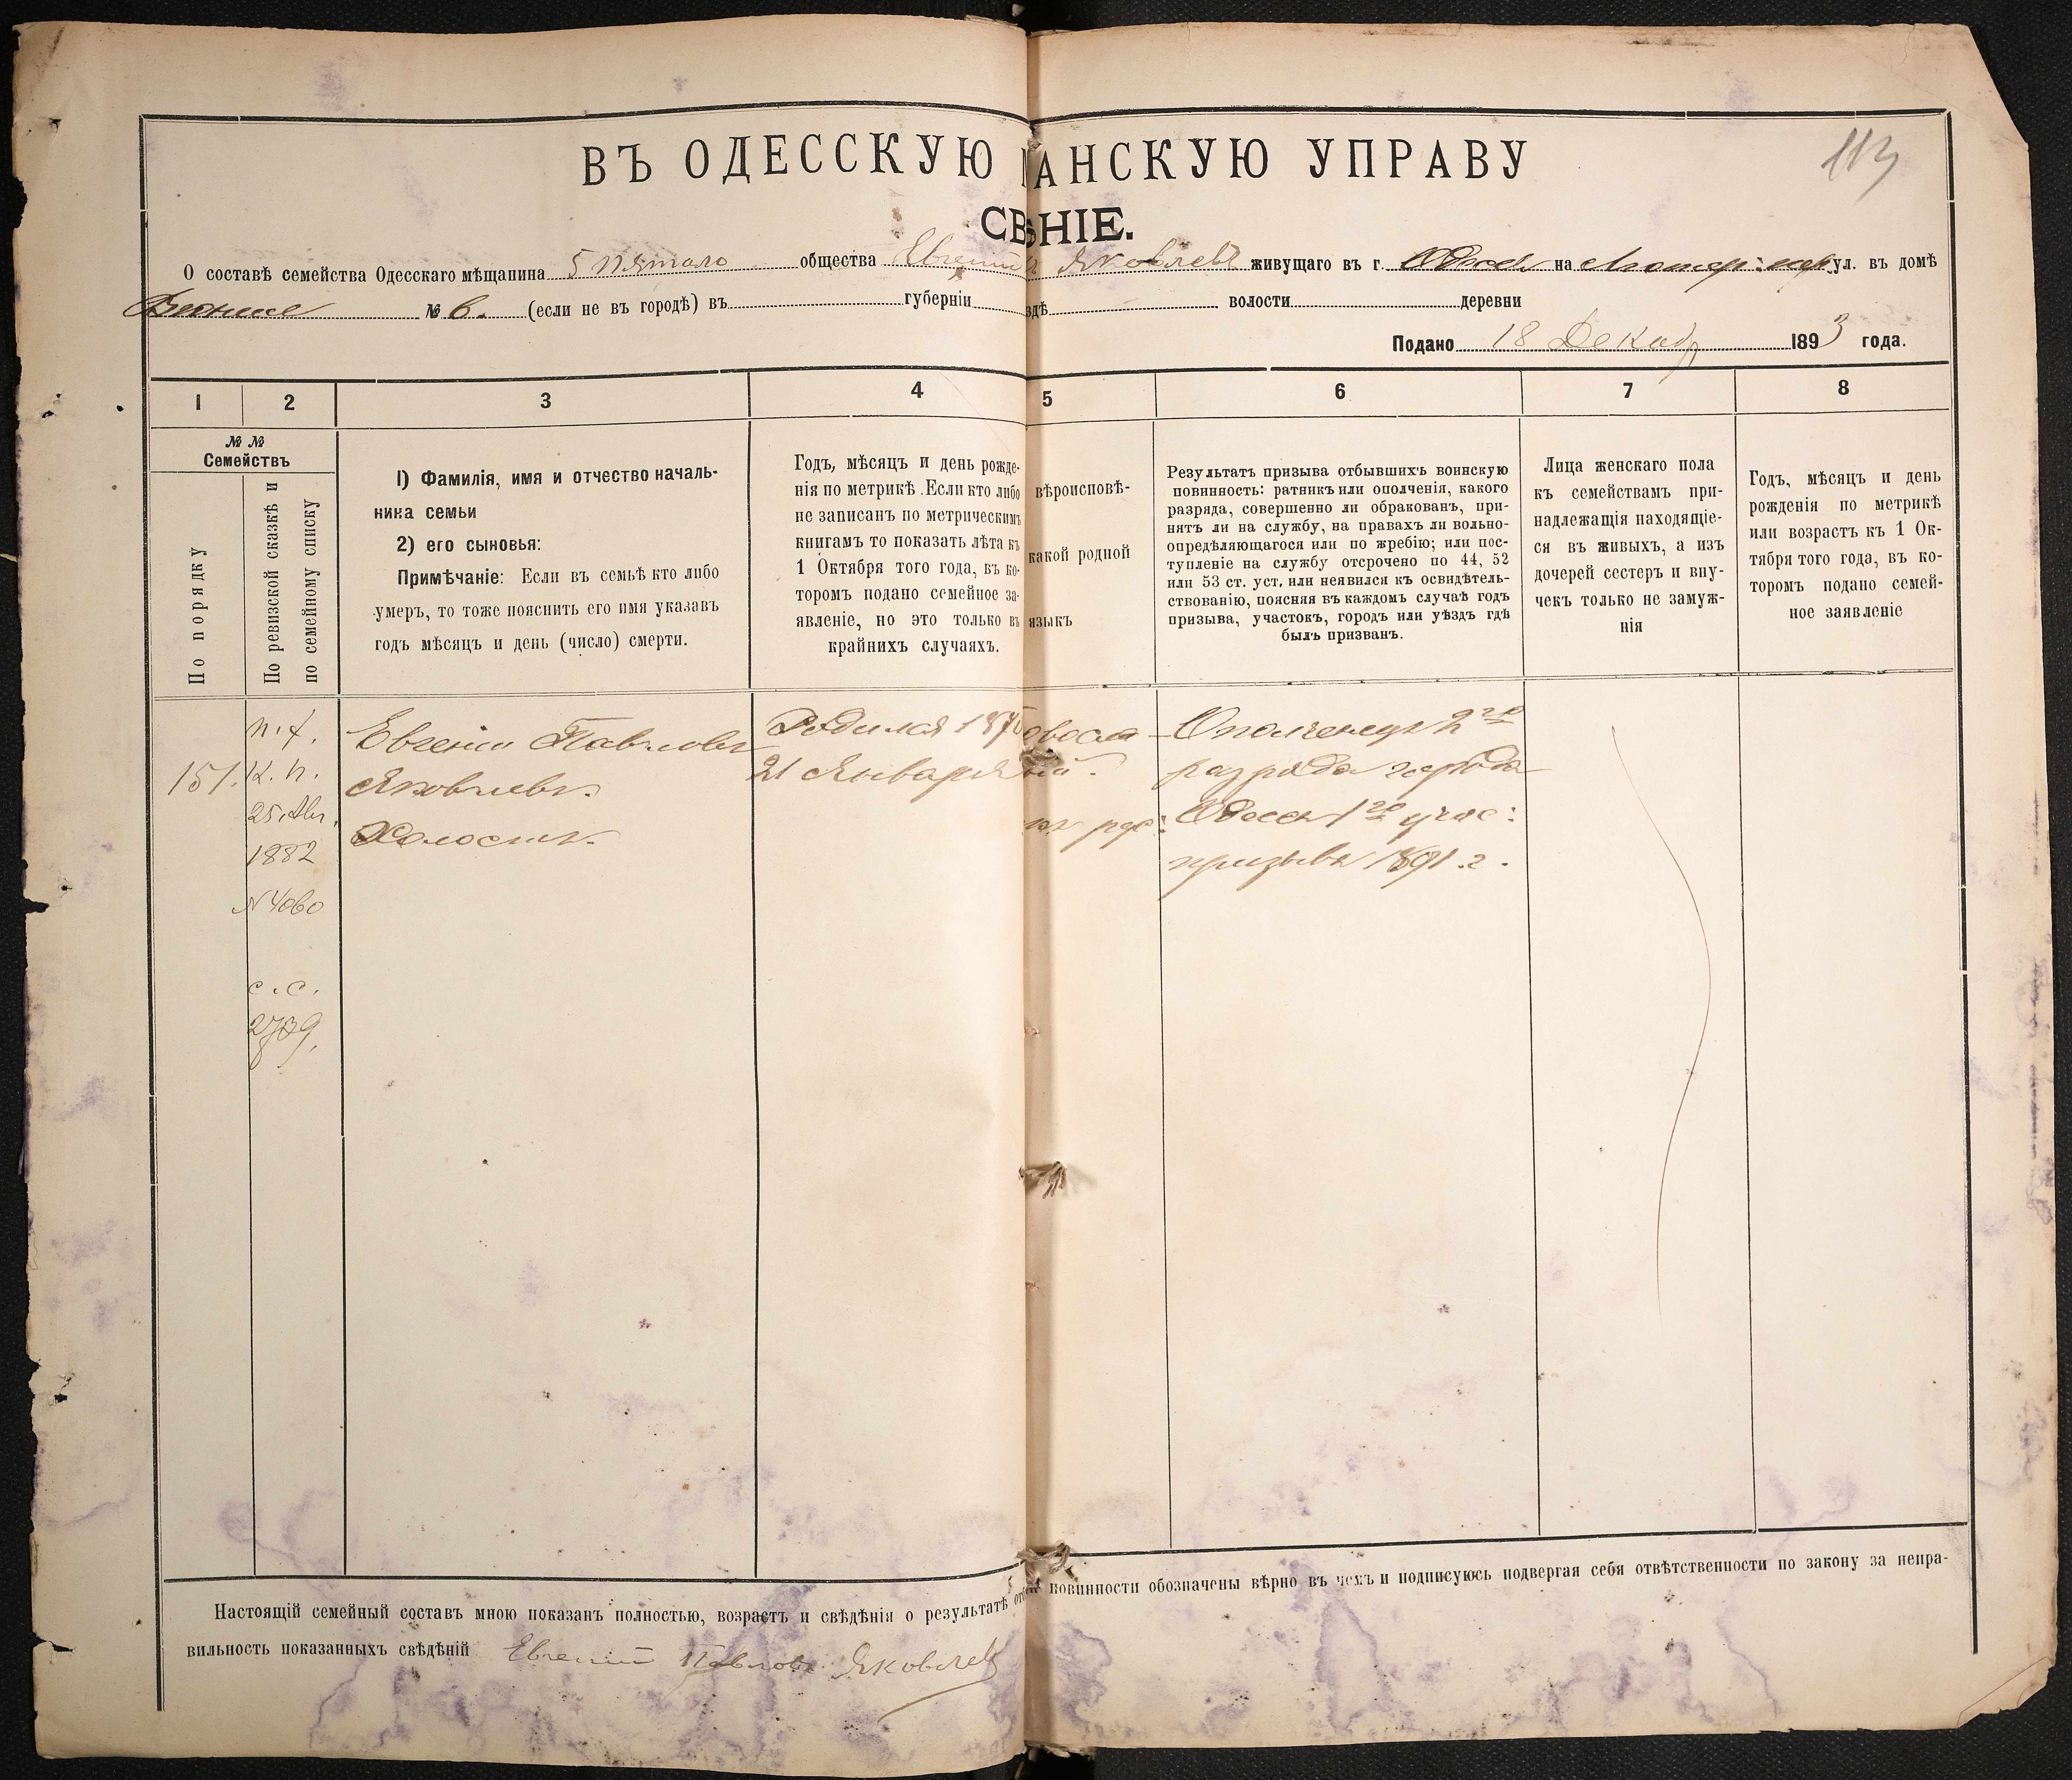 113
ВЪ ОДЕССКУЮ АНСКУЮ УПРАВУ
СВ ѢНІЕ.
О составѣ семейства Одесскаго мѣщанина 5 Пятаго общества Евгений Яковлевъ живущаго въ г. Одессѣ на ул. въ домѣ
№ 6. (если не въ городѣ) въ губерніи здѣ волости деревни
Подано 18 Декабр 1893 года.
1 2 3 4 5 6 7 8
№ №
Семействъ
По порядку
По ревизской сказкѣ и
по семейному списку
1) Фамилія, имя и отчество началь-
ника семьи
2) его сыновья:
Примѣчаніе: Если въ семьѣ кто либо
умеръ, то тоже пояснить его имя указавъ
годъ мѣсяцъ и день (число) смерти.
Годъ, мѣсяцъ и день рожде-
нія по метрикѣ. Если кто либо
не записанъ по метрическимъ
книгамъ то показать лѣта къ
1 Октября того года, въ ко-
торомъ подано семейное за-
явленіе, но это только въ
крайнихъ случаяхъ.
вѣроисповѣ-
какой родной
языкъ
Результатъ призыва отбывшихъ воинскую
повинность: ратникъ или ополченія, какого
разряда, совершенно ли обракованъ, при-
нятъ ли на службу, на правахъ ли вольно-
опредѣляющагося или по жребію; или пос-
тупленіе на службу отсрочено по 44, 52
или 53 ст. уст. или неявился къ освидѣтель-
ствованію, поясняя въ каждомъ случаѣ годъ
призыва, участокъ, городъ или уѣздъ гдѣ
былъ призванъ.
Лица женскаго пола
къ семействамъ при-
надлежащія находящіе-
ся въ живыхъ, а изъ
дочерей сестеръ и вну-
чекъ только не замуж-
нія
Годъ, мѣсяцъ и день
рожденія по метрикѣ
или возрастъ къ 1 Ок-
тября того года, въ ко-
торомъ подано семей-
ное заявленіе
151.
К. п.
25 Авг.
1882
№ 4060
с. с.
2739.
Евгеній Павловъ
Яковлевъ.
Холостъ.
Родился 1870
21 Января
овосла
ный.
рус:
Ополченецъ 2го
разряда города
Одессы 1го учас:
призыва 1891 г.
Настоящій семейный составъ мною показанъ полностью, возрастъ и свѣдѣнія о результатѣ повинности обозначены вѣрно въ чемъ и подписуюсь подвергая себя отвѣтственности по закону за непра-
вильность показанныхъ свѣдѣній Евгений Павловъ Яковлевъ